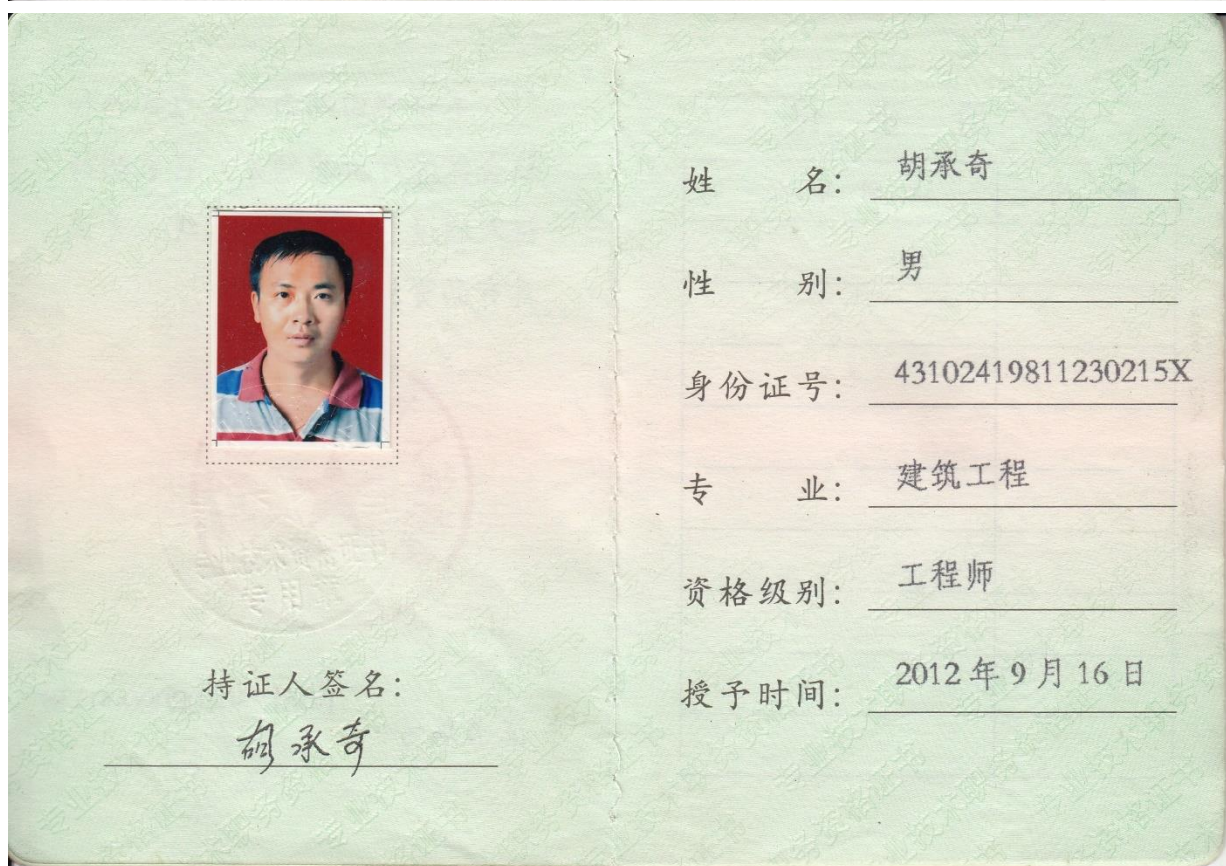 持证人签名:
胡承奇
姓 名: 胡承奇
性 别: 男
身份证号: 43102419811230215X
专 业: 建筑工程
资格级别: 工程师
授予时间: 2012 年 9 月 16 日
专用章